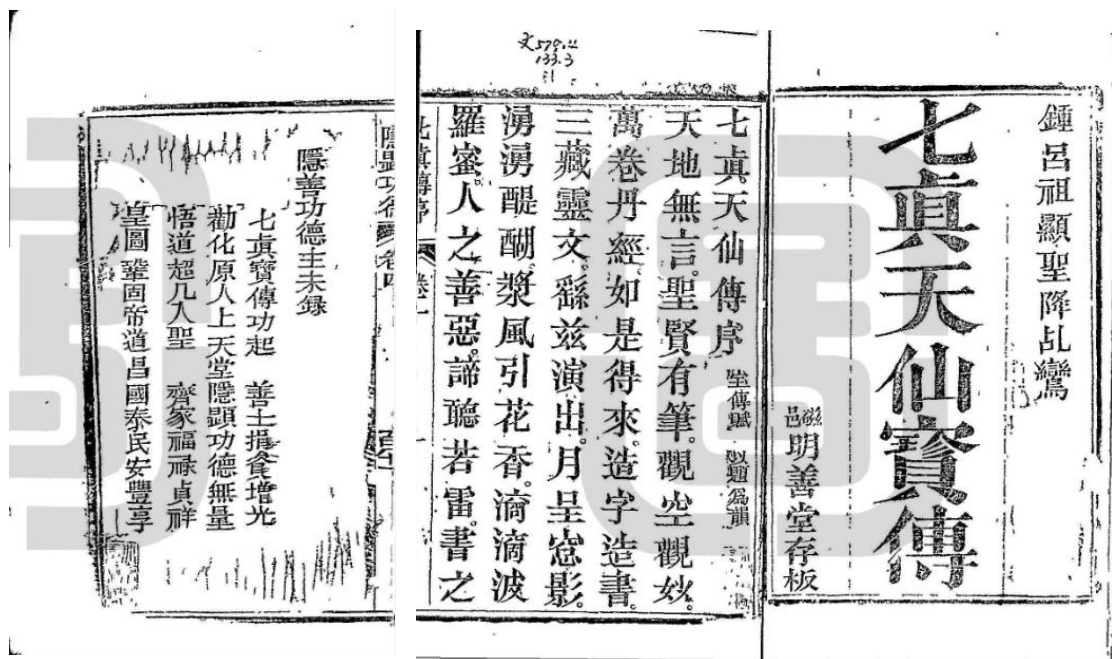 鍾呂祖顯聖降乩鸞
七眞天仙寶傳
邑明善堂存板
文579.11
133.3
七眞天仙傳序
天地無言。聖賢有筆。觀空觀妙。
萬卷丹經。如是得來。造字造書。
三藏靈文。繇兹演出。月呈窓影。
湧湧醍醐漿。風引花香。滴滴波
羅蜜。人之善惡。諦聽若雷。書之
七眞傳序 卷一
隱顯功德 卷四
隱善功德主未錄
七眞寶傳功起 善士捐資增光
勸化原人上天堂 隱顯功德無量
悟道超凡入聖 齊家福祿貞祥
皇圖鞏固帝道昌 國泰民安豐享